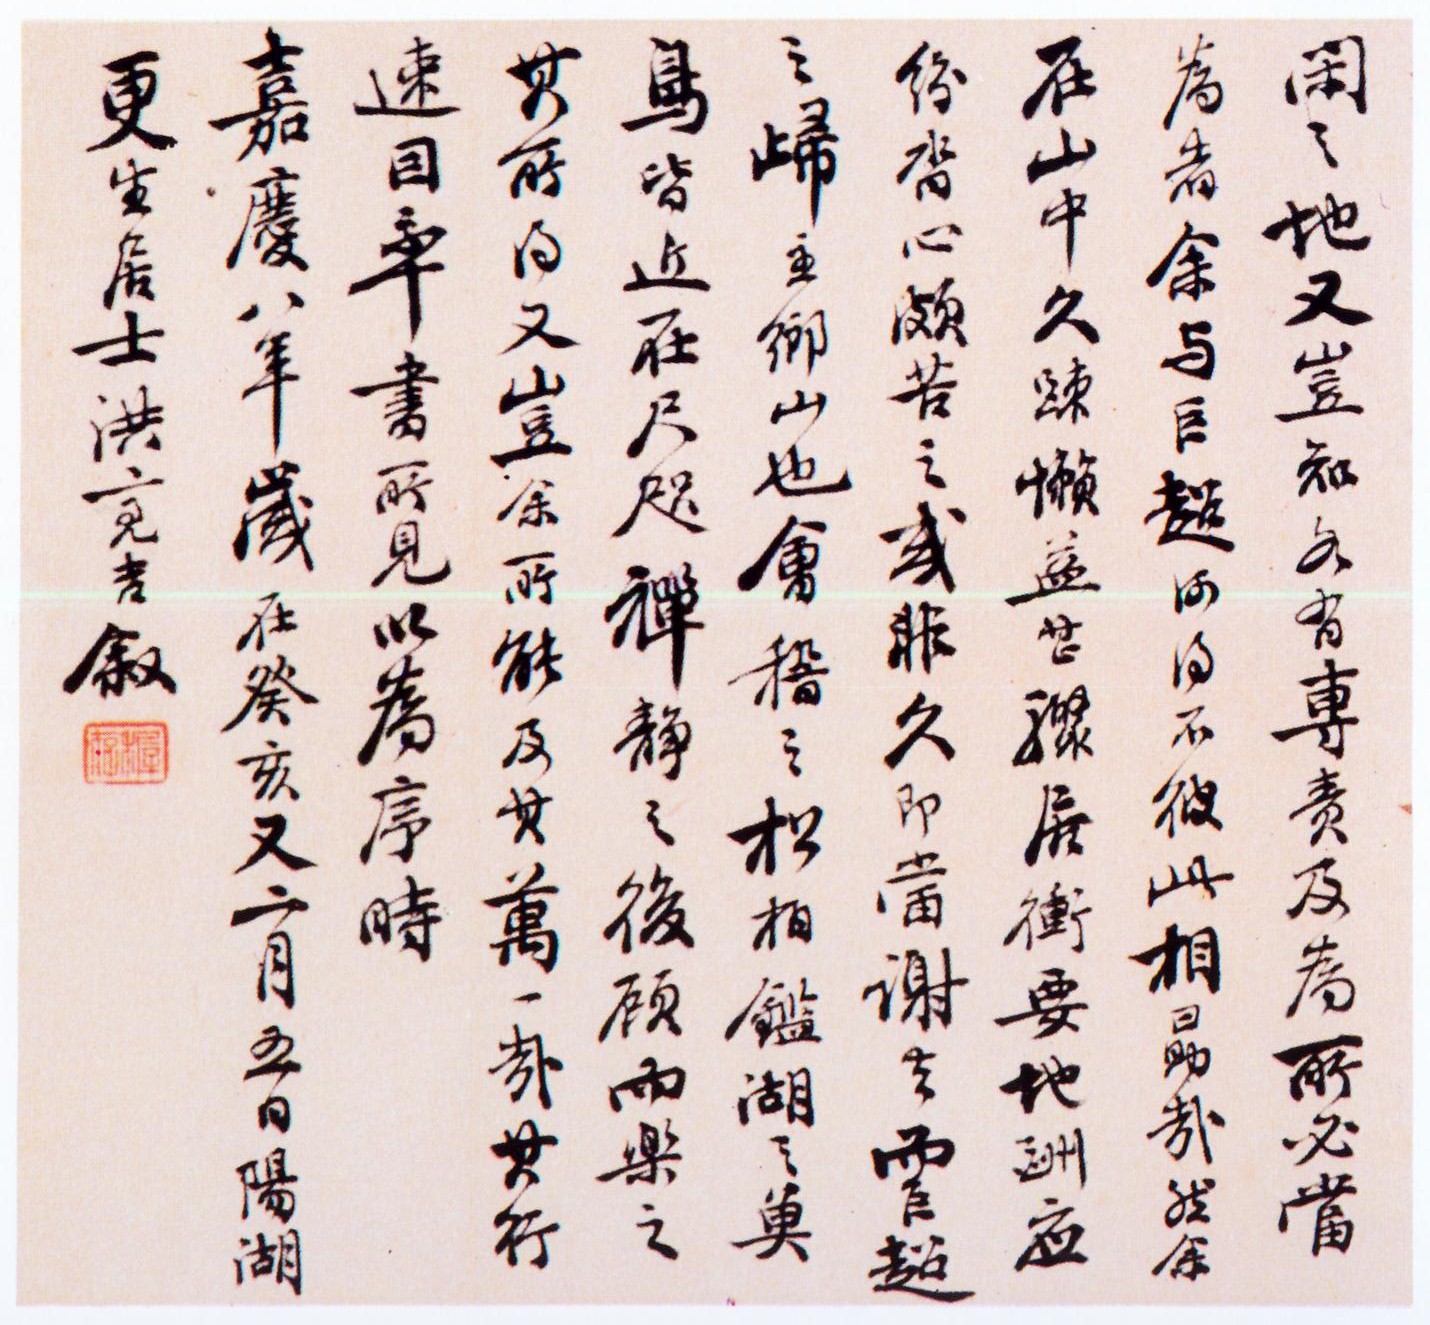 閑之地又豈知各有專責及為所必當
為者余与巨超何得不彼此相勗哉然余
在山中久踈懶益甚驟居衝要地酬應
紛沓心頗苦之或非久即當謝去而巨超
之歸主鄉山也會稽之松柏鑑湖之奠
鳥皆近在尺咫禪靜之後顧而樂之
其所得又豈余所能及其萬一哉其行
速因率書所見以為序時
嘉慶八年歲在癸亥又二月五日陽湖
更生居士洪亮吉敘